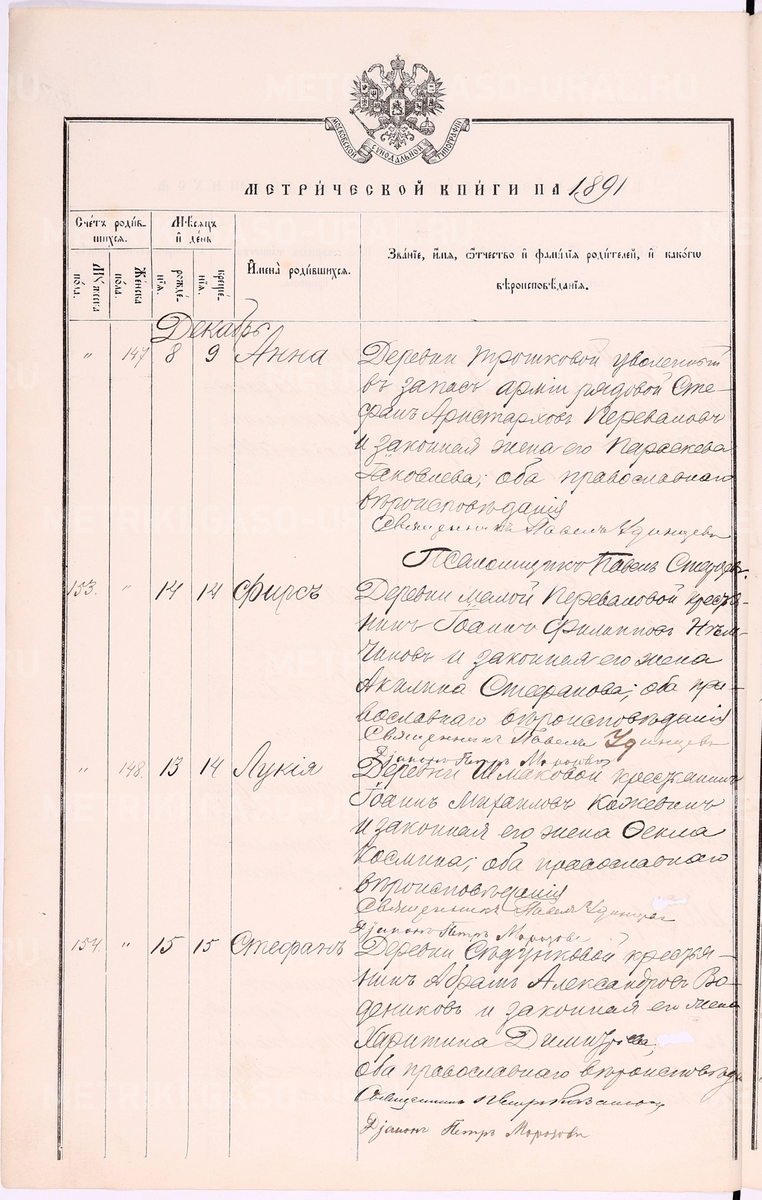 METRIKI.GASO-URAL.RU
МОСКОВСКОЙ СѴНОДАЛЬНОЙ ТИПОГРАФІИ
МЕТРИ́ЧЕСКОЙ КНИ́ГИ НА 1891
Сче́тъ роди́в-
шихся.
Мꙋжеска по́ла.
Же́нска по́ла.
Мѣ́сяцъ и҆ де́нь
рожде́нїѧ.
креще́нїѧ.
И҆мена̀ роди́вшихся.
Зва́нїе, и҆́мѧ, ѻ҆́тчество и҆ фами́лїѧ роди́телей, и҆ како́гѡ
вѣроисповѣ́данїѧ.
Декабрь
" 147 8 9 Анна Деревни Трошковой уволенный
въ запасъ арміи рядовой Сте-
фанъ Аристарховъ Переваловъ
и законная жена его Параскева
Іаковлева; оба православнаго
вѣроисповѣданія
Священникъ Павелъ Удинцевъ
Псаломщикъ Павелъ
153. " 14 14 Фирсъ Деревни малой Переваловой кресья-
нинъ Іоаннъ Филипповъ Нѣм-
чиновъ и законная его жена
Акилина Стефанова; оба пра-
вославнаго вѣроисповѣданія
Священникъ Павелъ Удинцевъ
Діаконъ Петръ Морозовъ
" 148. 13 14 Лукія Деревни Шмаковой кресьянинъ
Іоаннъ Михаиловъ Кожевинъ
и законная его жена Ѳекла
Космина; оба православнаго
вѣроисповѣданія
Священникъ Павелъ Удинцевъ
Діаконъ Петръ Морозовъ
154. " 15 15 Стефанъ Деревни кресья-
нинъ Абрамъ Александровъ Во-
дениковъ и законная его жена
Харитина Димитріева,
оба православнаго вѣроисповѣда
Священникъ Петръ
Діаконъ Петръ Морозовъ